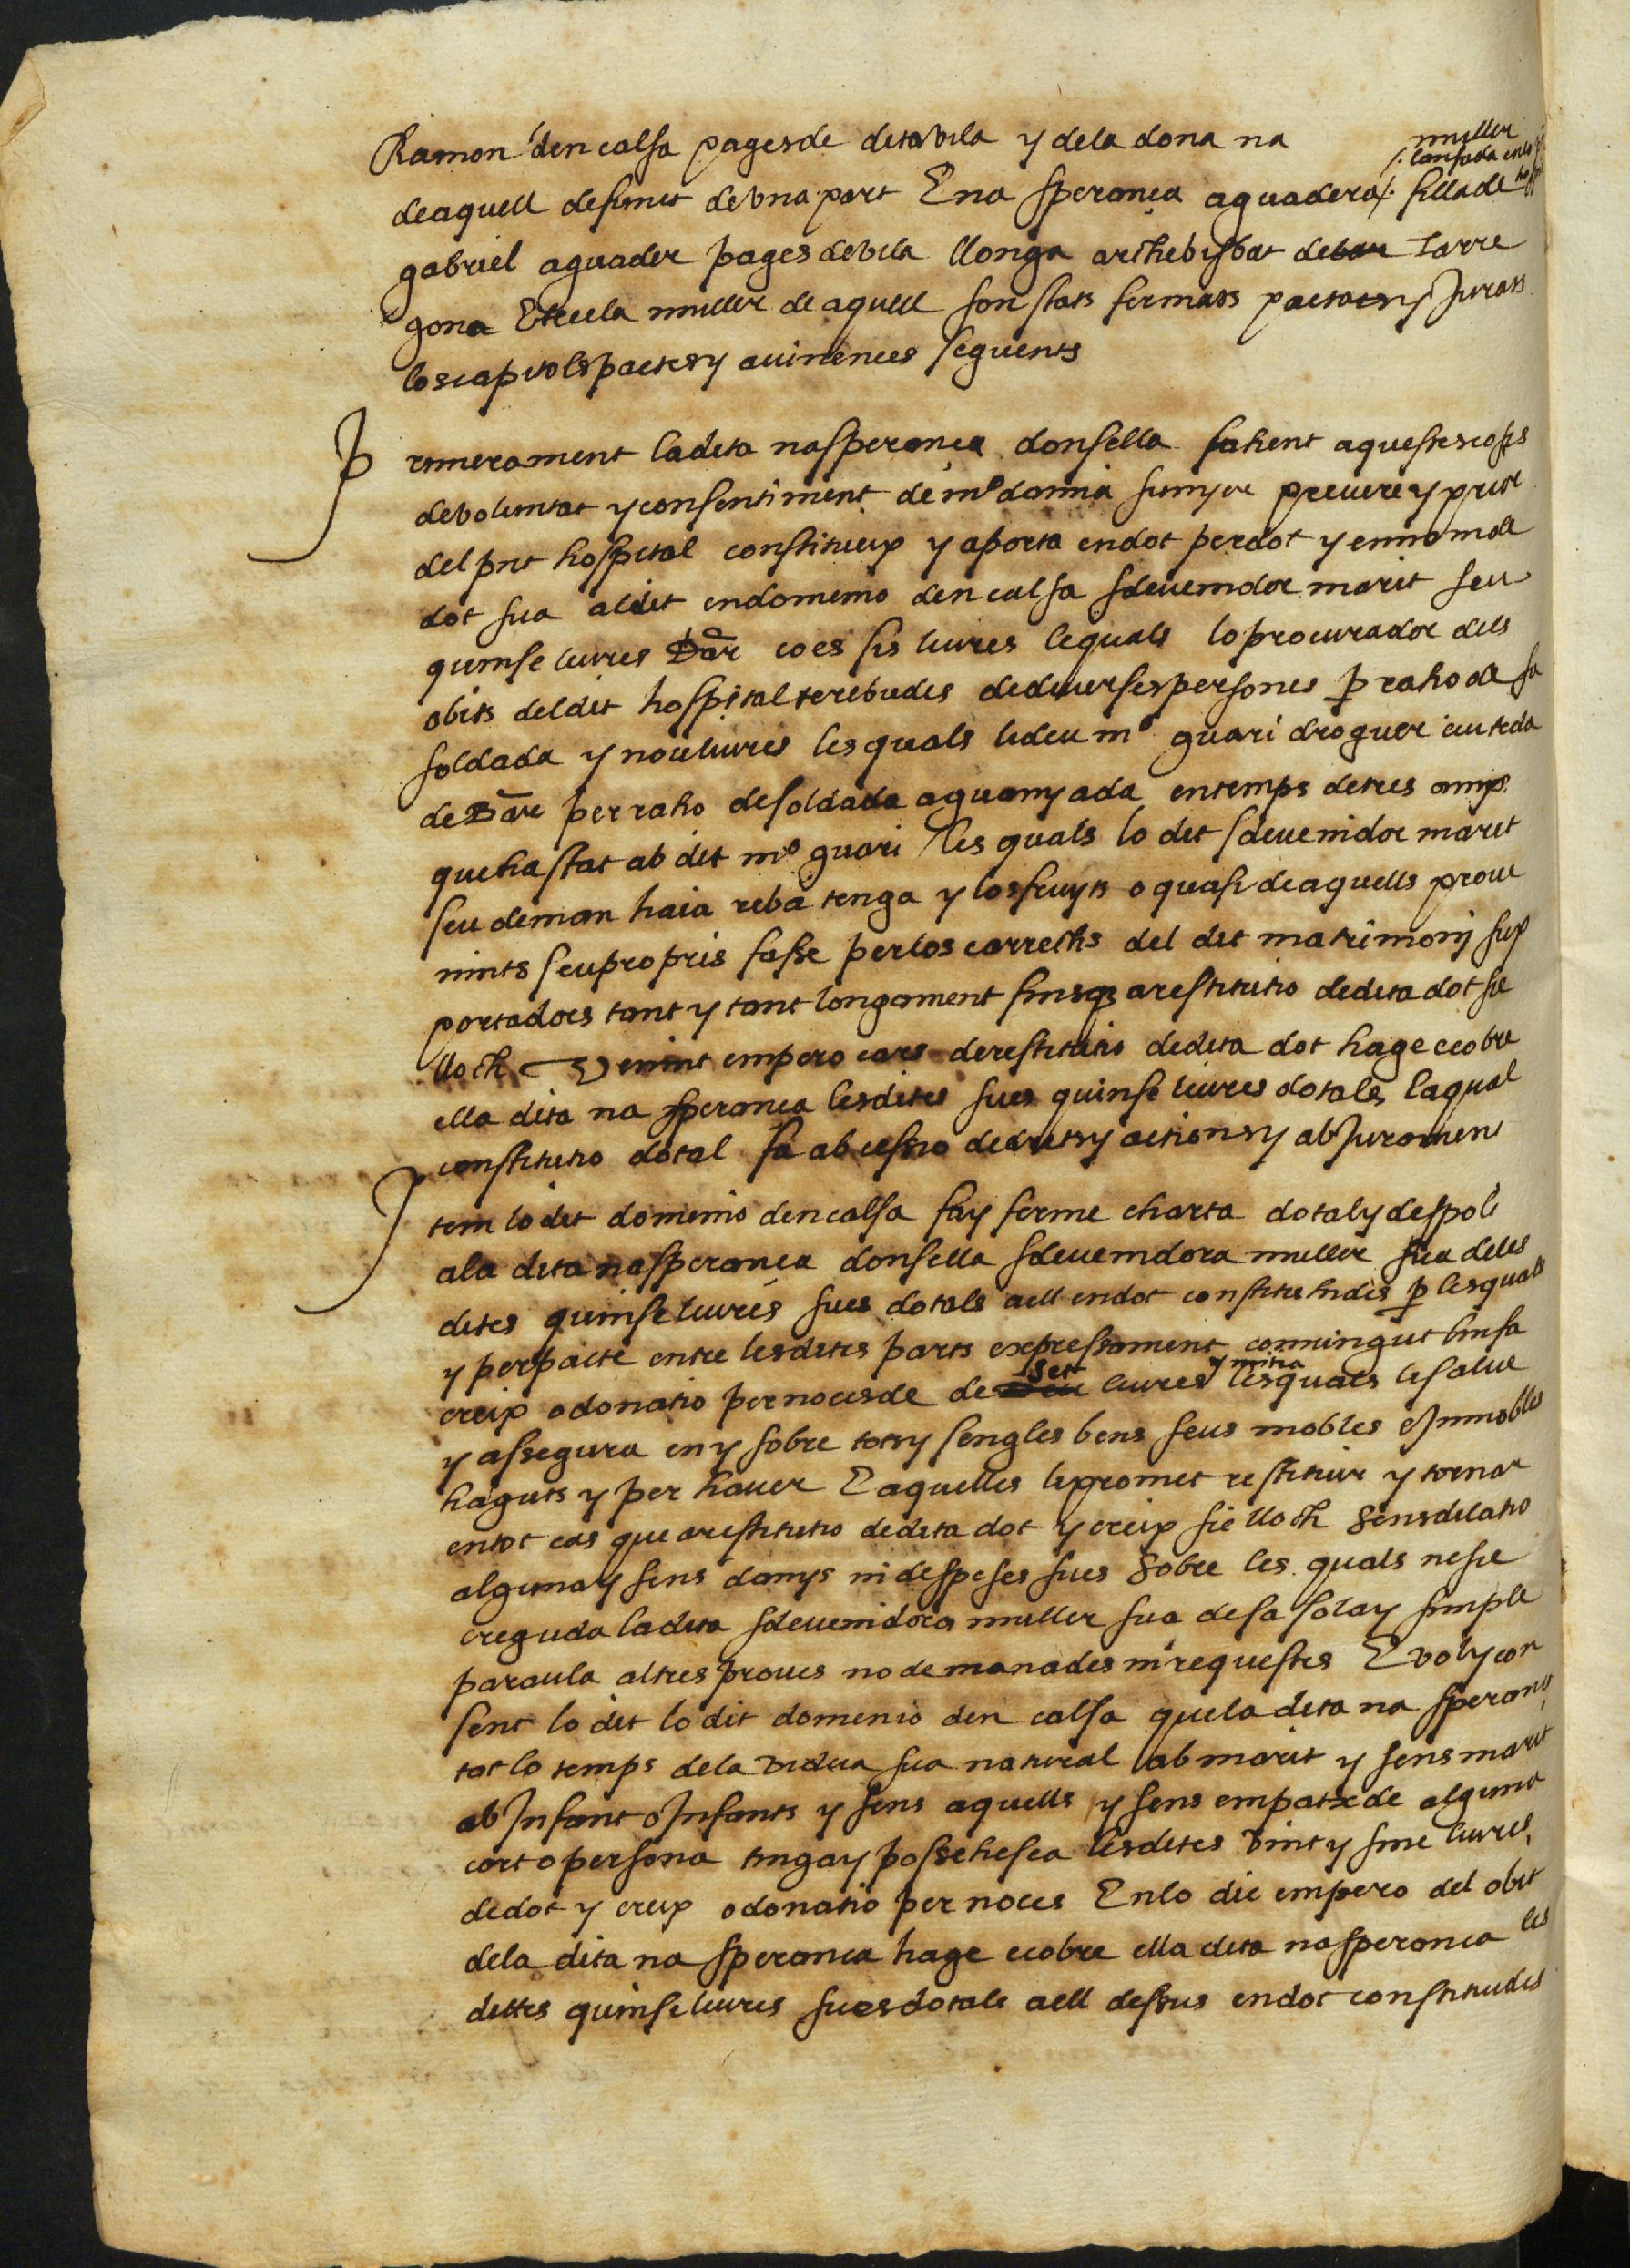 Ramon den calsa pages de dita vila y dela dona na muller
de aquell defunct de vna part E na sperança aguadera /. lansada en lo
filla de
gabriel aguader pages de vila llonga archebisbat de bar Tarre
gona E tecla muller de aquell son stats fermats pactats y Jurats
los capitols pactes y auinences seguents
Primerament la dita na sperança donsella fahent aquestes coses
de voluntat y consentiment de mº prevere y prior
del pnt hospital constitueix y aporta en dot per dot y en nom de
dot sua al dit en domenio den calsa sdeuenidor marit seu
quinse liures Bar ço es sis liures lequals lo procurador dels
obits del dit hospital te rebudes de diuerses persones p raho de sa
soldada y nou liures les quals li deu mº guari droguer ciutada
de Bar per raho de soldada aguanyada en temps de tres anys
que ha stat ab dit mº guari les quals lo dit sdeuenidor marit
seu deman haia reba tenga y los fruyts o quasi de aquells proue
nints seu propris fasse per los carrechs del dit matrimonj sup
portadors tant y tant longament fins q a restitutio de dita dot sie
lloch Venint empero cars de restitutio de dita dot hage e cobre
ella dita na sperança les dites sues quinse liures dotals laqual
constitutio dotal fa ab cessio de drets y actions y ab Jurament
Item lo dit domenio den calsa fa y ferme charta dotal y despoli
ala dita na sperança donsella sdeuenidora muller sua deles
dites quinse liures sues dotals a ell en dot constituhides p lesquals
y per pacte entre les dites parts expressament conuingut li nfa
creix o donatio per noces de de deu set liures y mitia lesquals li salue
y assegura en y sobre tots y sengles bens seus mobles e Jnmobles
haguts y per hauer E aquelles li promet restituir y tornar
en tot cas que a restitutio de dita dot y creix sie lloch Sens dilatio
alguna y sens danys ni despeses sues Sobre les quals ne sie
creguda la dita sdeuenidora muller sua de sa sola y simple
paraula altres proues no demanades ni requestes E vol y con
sent lo dit lo dit domenio den calsa que la dita na speransa
tot lo temps dela vidua sua natural ab marit y sens marit
ab Jnfant o Jnfants y sens aquells y sens empatx de alguna
cort o persona tinga y possehesca les dites vint y sinc liures
de dot y creix o donatio per noces En lo die empero del obit
dela dita na sperança hage e cobre ella dita na sperança les
dittes quinse liures sues dotals a ell dessus en dot constitudes